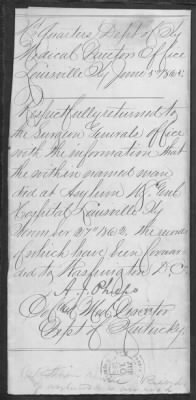 Hd Quarters Dept of Ky
Medical Directors Office
Louisville Ky June 5th 186
Respectfully returned to
the Surgeon Generals office
with the information that
the within named man
died at Asylum Gen
Hospital Louisville Ky
November 27th 1862. the records
of which have been forwar
ded to Washington D.C.
A. J. Phelps
Med Director
Dept of Kentucky